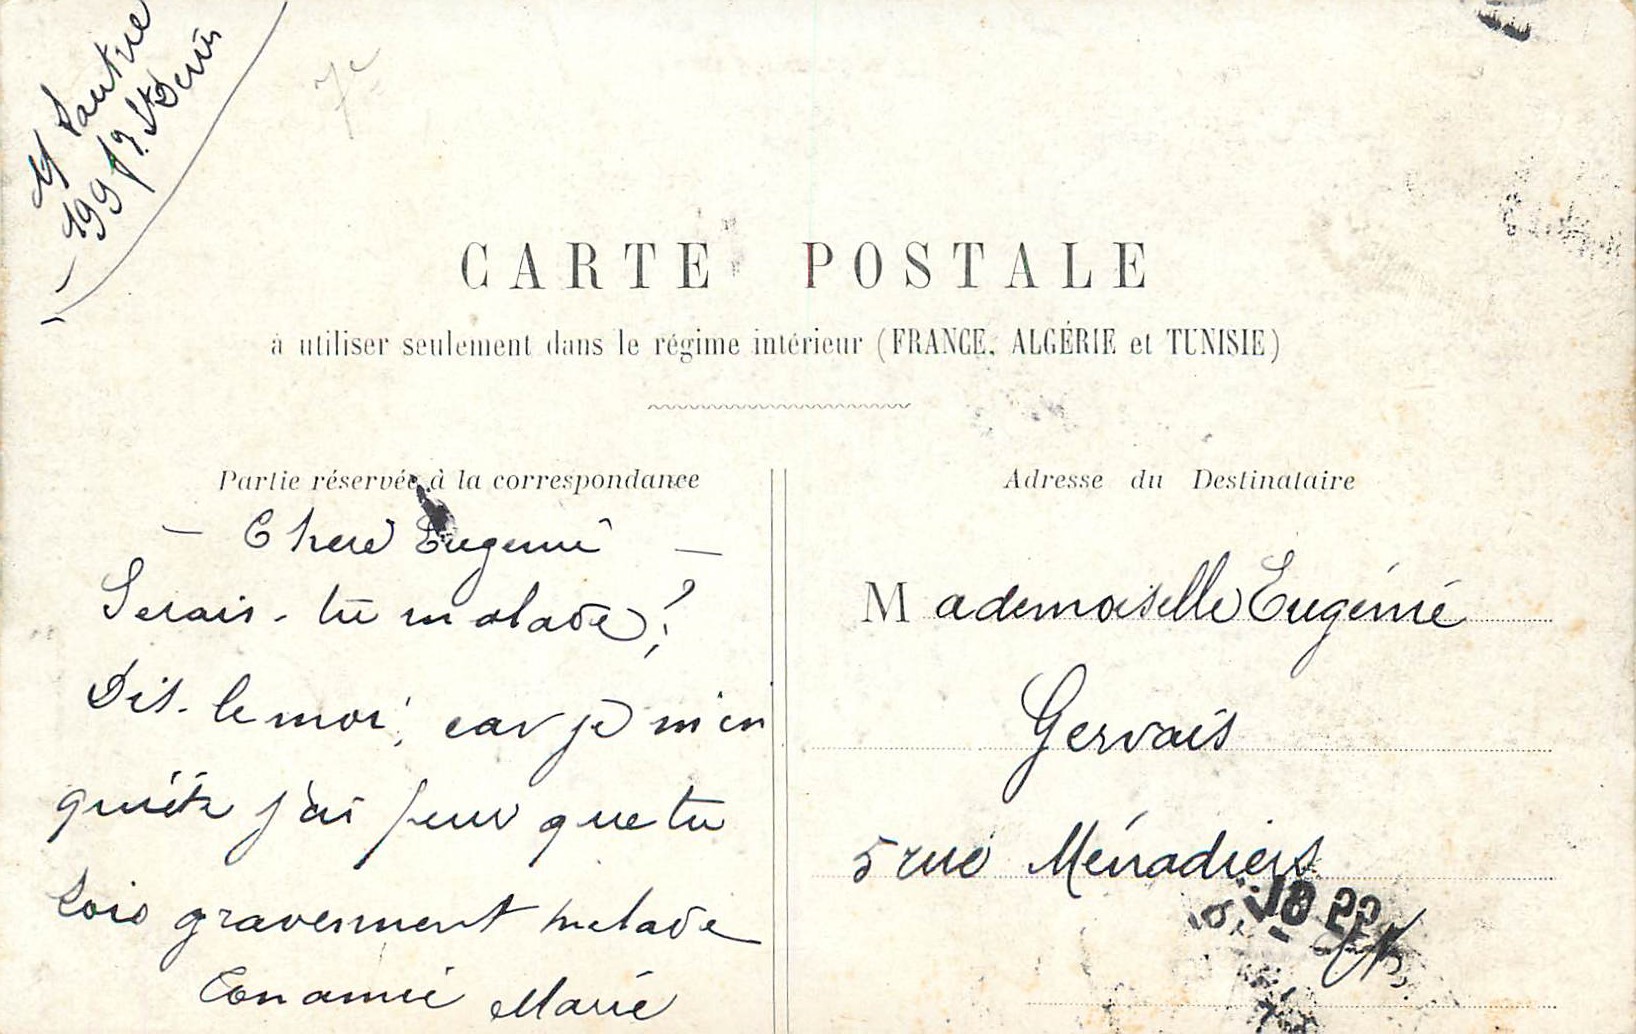 M Pautre
199 f9. St Denis
7e
CARTE POSTALE
à utiliser seulement dans le régime intérieur (FRANCE, ALGÉRIE et TUNISIE)
Partie réservée à la correspondance
Adresse du Destinataire
- Chere Eugenie -
Serais-tu malade?
Dis-le moi; car je m'in
quiète j'ai peur que tu
sois gravement malade
Ton amie Marie
Mademoiselle Eugénie
Gervais
5 rue Ménadier
18 22